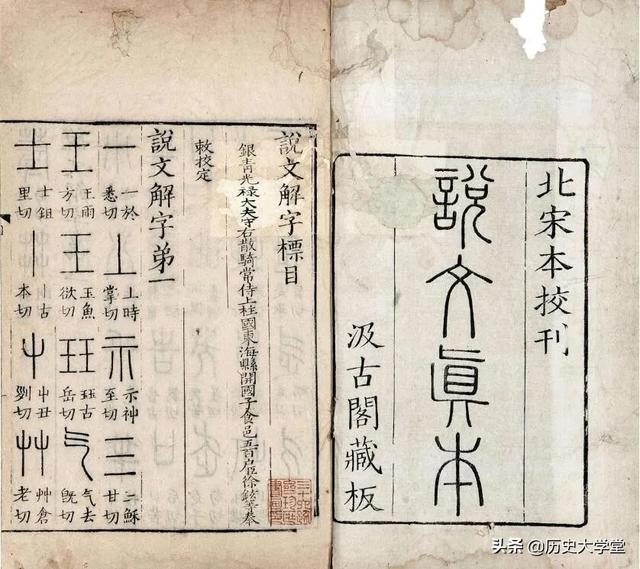 北宋本挍刊
說文眞本
汲古閣藏板
說文解字標目
銀青光祿大夫守右散騎常侍上柱國東海縣開國子食邑五百户臣徐鉉等奉
敕挍定
說文解字弟一
一 一於悉切 丄 上時掌切 示 示神至切 三 三穌甘切
王 王雨方切 王 玉魚欲切 珏 珏古岳切 气 气去旣切
士 士鉏里切 丨 丨古本切 屮 屮丑列切 艸 艸倉老切
头条 @历史大学堂